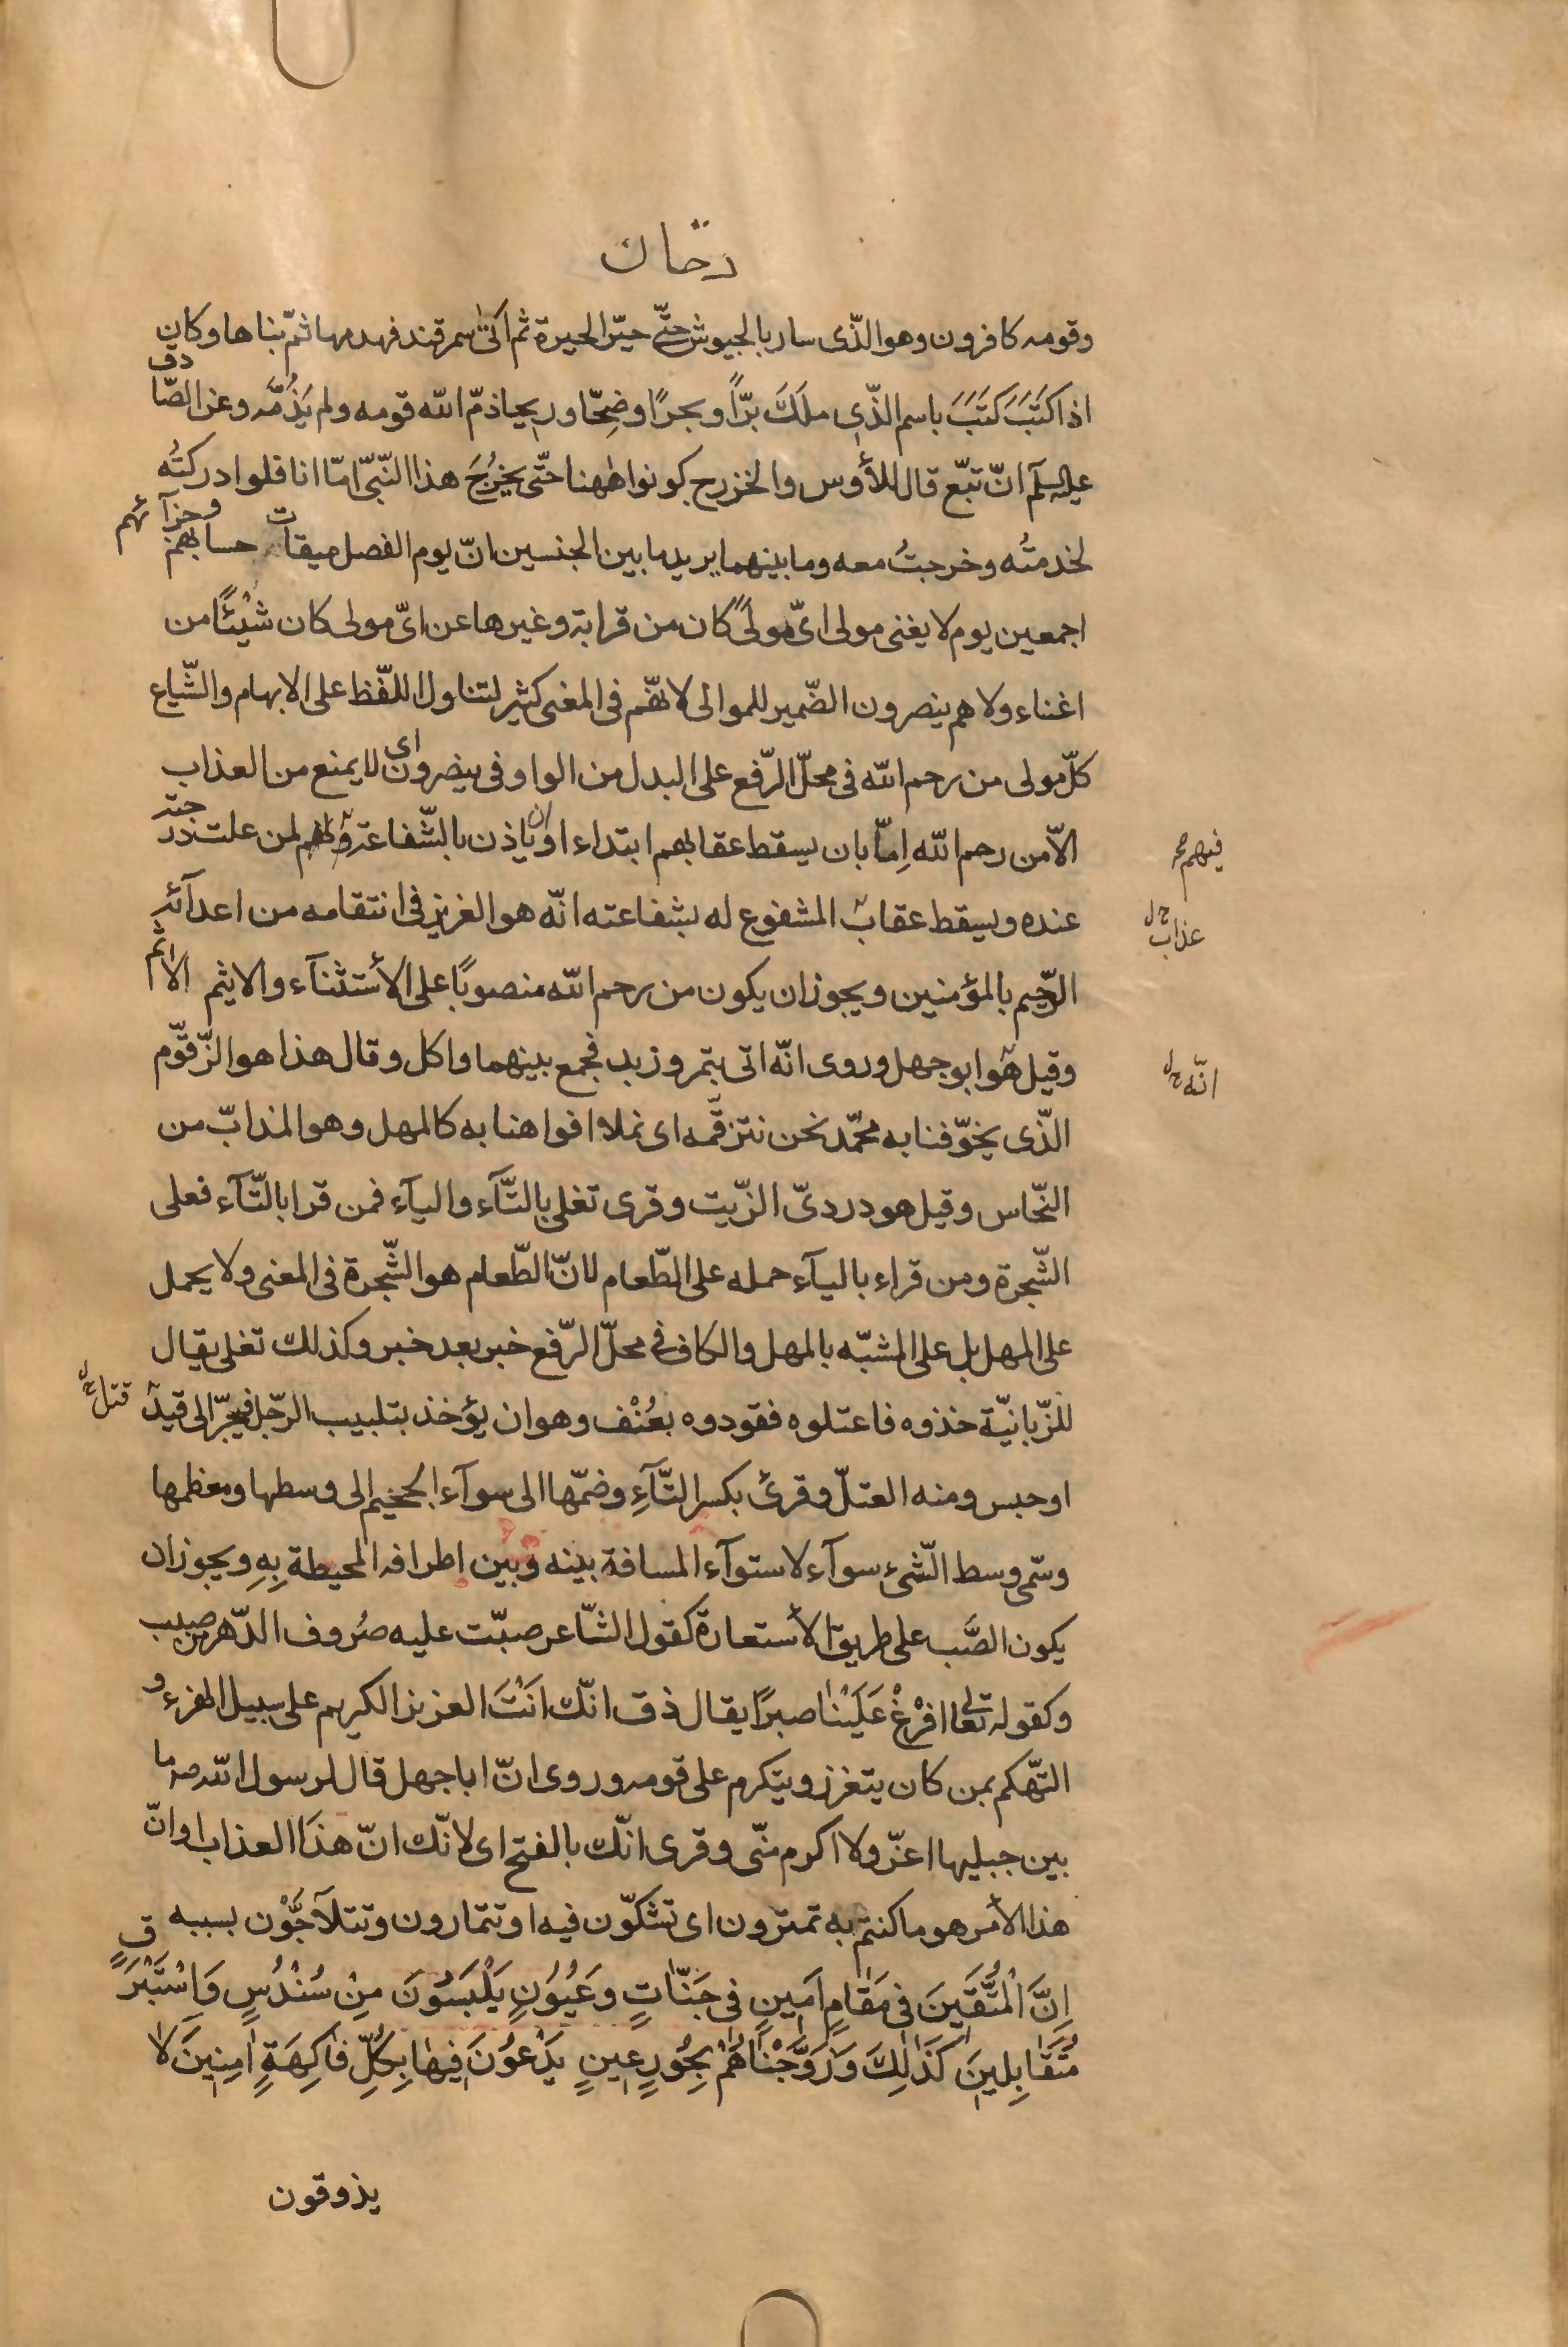 دخان
وقومه كافرون وهو الّذى سار بالجيوش حتّى حيّر الحيرة ثم اتى سمرقند فهدمها ثمّ بناها وكان
اذا كَتَبَ كَتَبَ باسم الّذى ملَكَ برًّا وبحرًا وضِحًّا وريحا ذمّ الله قومه ولم يَذُمَّه وعن الصّادق
عليه السلم انّ تبّع قال للأوس والخزرج كونوا ههنا حتّى يخرُجَ هذا النّبىّ امّا انا فلو ادركتُه
لخدمتُه وخرجتُ معه وما بينهما يريد ما بين الجنسين انّ يوم الفصل ميقات حسابهم وجزآئهم
اجمعين يوم لا يغنى مولى اىّ مولىً كان من قرابة وغيرها عن اىّ مولى كان شيْئًا من
اغناء ولا هم ينصرون الضّمير للموالى لانّهم فى المغنى كثير لتناول اللفّظ على الابهام والشّياع
كلّ مولى من رحم الله فى محلّ الرّفع على البدل من الواو فى ينصرون اى لا يمنع من العذاب
الّا من رحم الله اِمّا بان يسقط عقابهم ابتداء او بان ياذن بالشّفاعة لهم لمن علت درجته
عنده ويسقط عقاب المشفوع له بشفاعته انّه هو العزيز فى انتقامه من اعدآئه
الرّحيم بالمؤمنين ويجوز ان يكون من رحم الله منصوبًا على الأستثنآء والاثيم الاثم
وقيل هو ابو جهل وروى انّه اتى بتمر وزبد فجمع بينهما واكل وقال هذا هو الزّقّوم
الّذى يخوّفنا به محمّد نحن نتزقّمه اى نملأ افواهنا به كالمهل وهو المذابّ من
النّحاس وقيل هو دردىّ الزّيت وقرى تغلى بالتّآء واليآء فمن قرا بالتّآء فعلى
الشّجرة ومن قراء باليآء حمله على الطّعام لانّ الطّعام هو الشّجرة فى المعنى ولا يحمل
على المهل بل على المشبّه بالمهل والكاف فى محلّ الرّفع خبر بعد خبر وكذلك تغلى يقال
للزّبانيّة خذوه فاعتلوه فقودوه بعُنْف وهو ان يؤخذ بتلبيب الرّجل فيجرّ الى قيد
او حبس ومنه العتلّ وقرئ بكسر التّآءِ وضمّها الى سوآء الجحيم الى وسطها ومعظمها
وسمّى وسط الشّىء سوآء لاستوآء المسافة بينه وبين اطرافه المحيطة بِهِ ويجوز ان
يكون الصَّب على طريق الأستعارة كقول الشّاعر صبّت عليه صُروف الدّهر من صبب
وكقوله تعالى افْرغْ عَلَيْنا صبرًا يقال ذق انّك انْتَ العزيز الكريم على سبيل الهزء و
التّهكم بمن كان يتعزز ويتكرم على قومه وروى انّ ابا جهل قال لرسول الله صه ما
بين جبليها اعزّ ولا اكرم منّى وقرى انّك بالفتح اى لانّك انّ هذا العذاب او انّ
هذا الأمر هو ما كنتم به تمترون اى تشكّون فيه او تتمارون وتتلآجّوْن بسببه
اِنَّ الْمُتَّقينَ فى مَقامٍ اَمينٍ فى جَنّاتٍ وَعُيُونٍ يَلْبَسُونَ مِنْ سُنْدُسٍ وَاِسْتَبْرَقٍ
مُتَقابِلينَ كَذلِكَ وَزَوَّجْناهُمْ بِحُورٍ عينٍ يَدْعوُنَ فيها بِكُلِّ فاكِهَةٍ امِنينَ لا
يذوقون
فيهم
عذاب
انّه
قتل